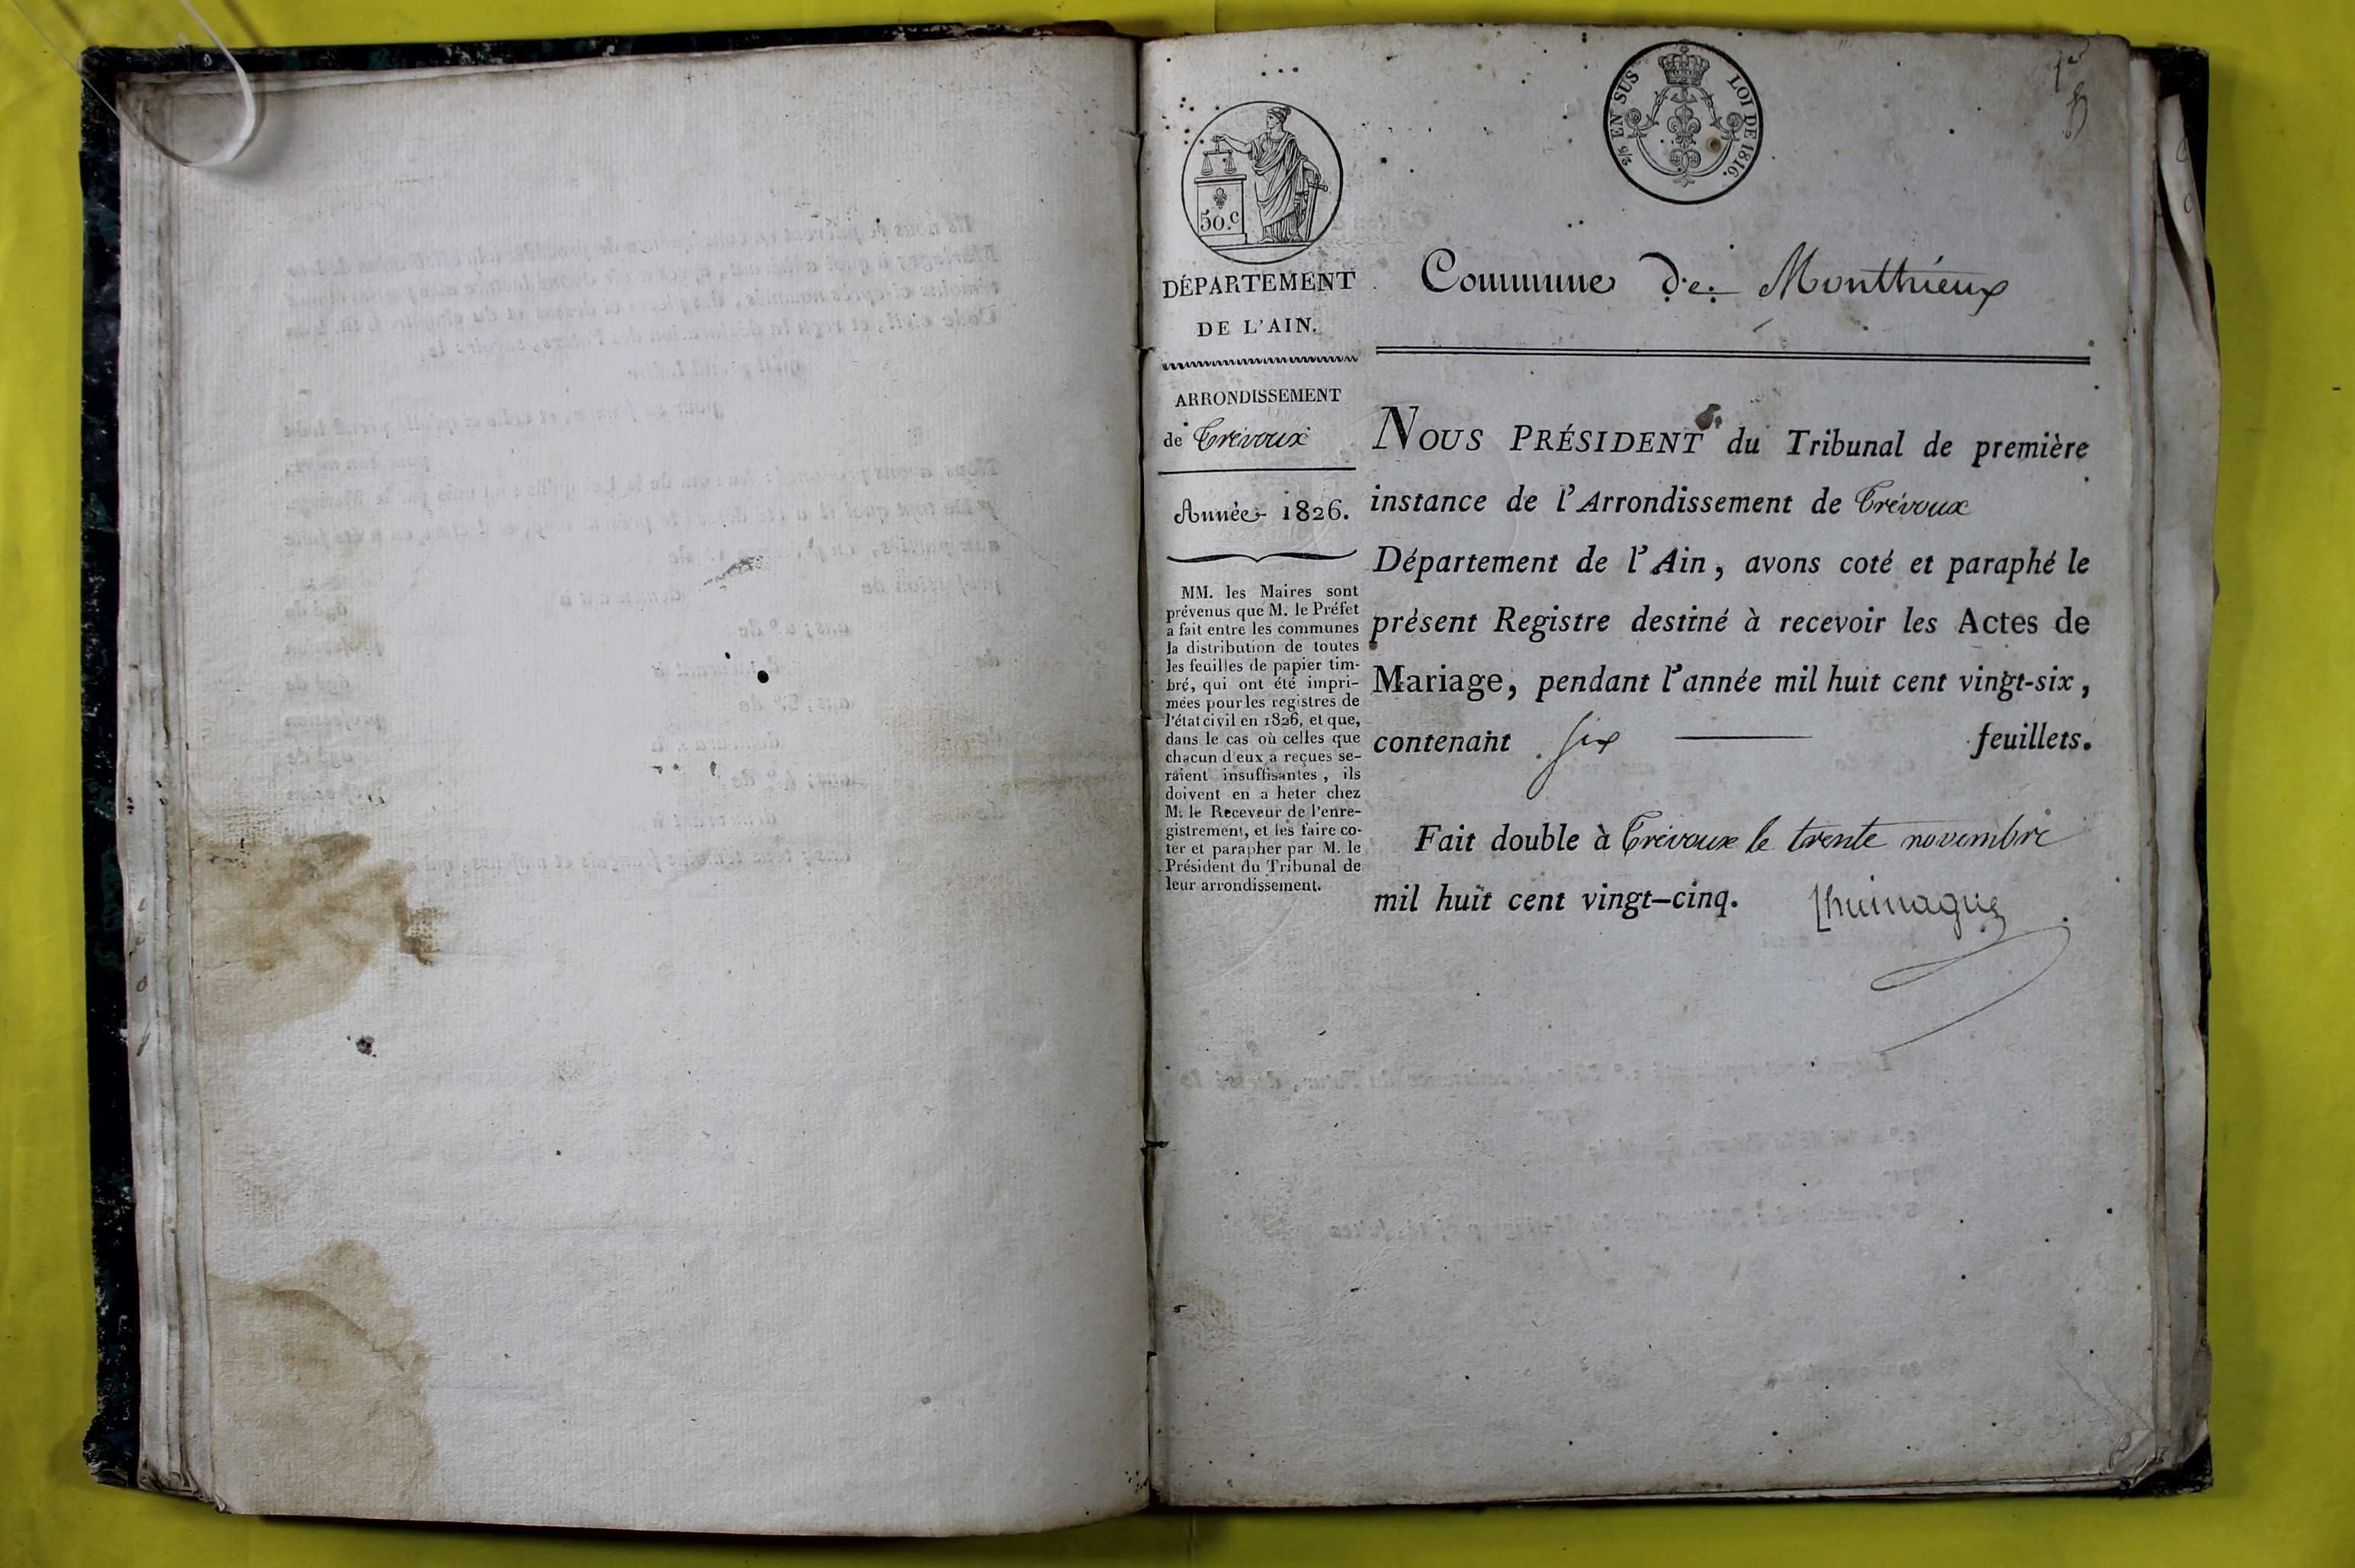 1er
2/5 EN SUS LOI DE 1816.
50.c
DÉPARTEMENT
DE L'AIN.
ARRONDISSEMENT
de Trévoux
Année 1826.
MM. les Maires sont
prévenus que M. le Préfet
a fait entre les communes
la distribution de toutes
les feuilles de papier tim-
bré, qui ont été impri-
mées pour les registres de
l'état civil en 1826, et que,
dans le cas où celles que
chacun d'eux a reçues se-
raient insuffisantes, ils
doivent en a heter chez
M. le Receveur de l'enre-
gistrement, et les faire co-
ter et parapher par M. le
Président du Tribunal de
leur arrondissement.
Commune de Monthieux
NOUS PRÉSIDENT du Tribunal de première
instance de l'Arrondissement de Trévoux
Département de l'Ain, avons coté et paraphé le
présent Registre destiné à recevoir les Actes de
Mariage, pendant l'année mil huit cent vingt-six,
contenant six feuillets.
Fait double à Trévoux le trente novembre
mil huit cent vingt-cinq.